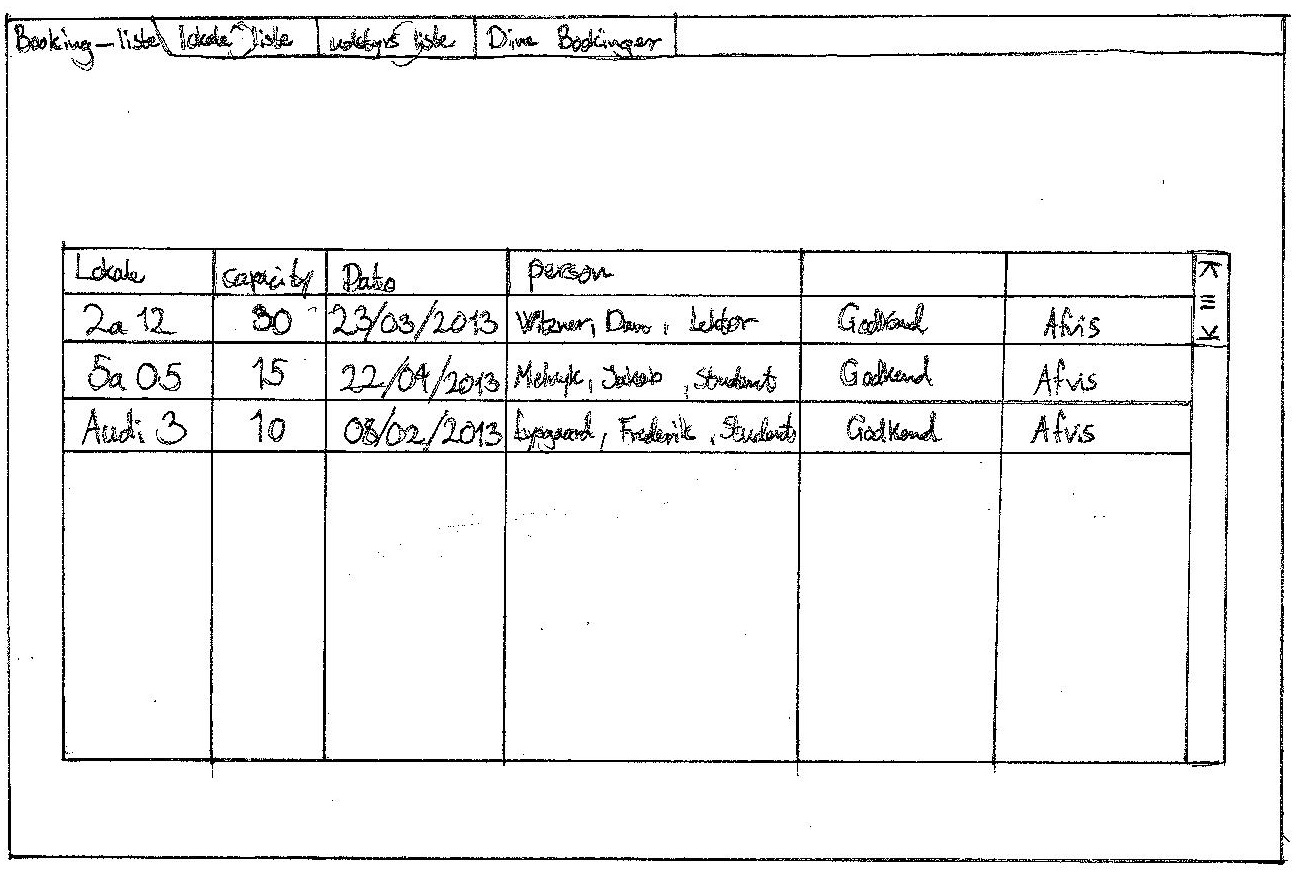 Booking-liste lokale liste udstyrs liste Dine Bookinger
Lokale capacity Dato person
2a 12 30 23/03/2013 Witzner, Dan, Lektor Godkend Afvis
5a 05 15 22/04/2013 Melnyk, Jakob, Student Godkend Afvis
Audi 3 10 08/02/2013 Lysgaard, Frederik, Student Godkend Afvis